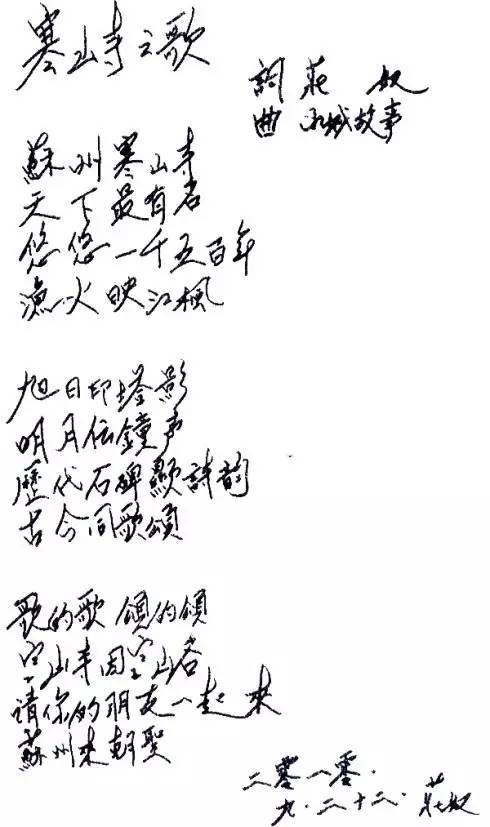 寒山寺之歌
詞 莊 奴
曲 小城故事
蘇州寒山寺
天下最有名
悠悠一千五百年
漁火映江楓
旭日印塔影
明月伝鐘声
歷代石碑顯詩韵
古今同歌頌
歌的歌 頌的頌
山寺因山
請你的朋友一起来
蘇州来朝聖
二零一零.
九.二十二. 莊奴